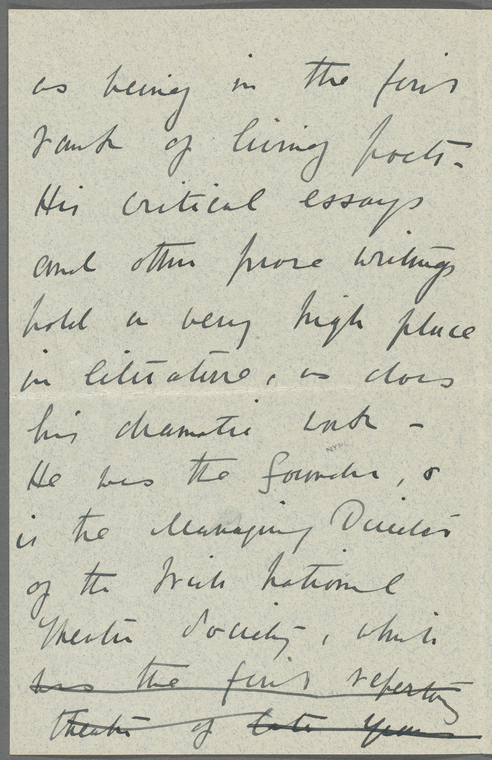 as being in the first
rank of living poets -
His critical essays
and other prose writings
hold a very high place
in literature, as does
his dramatic work -
He was the founder, &
is the Managing Director
of the Irish National
Theatre Society, which
was the first repertory
theatre of late years